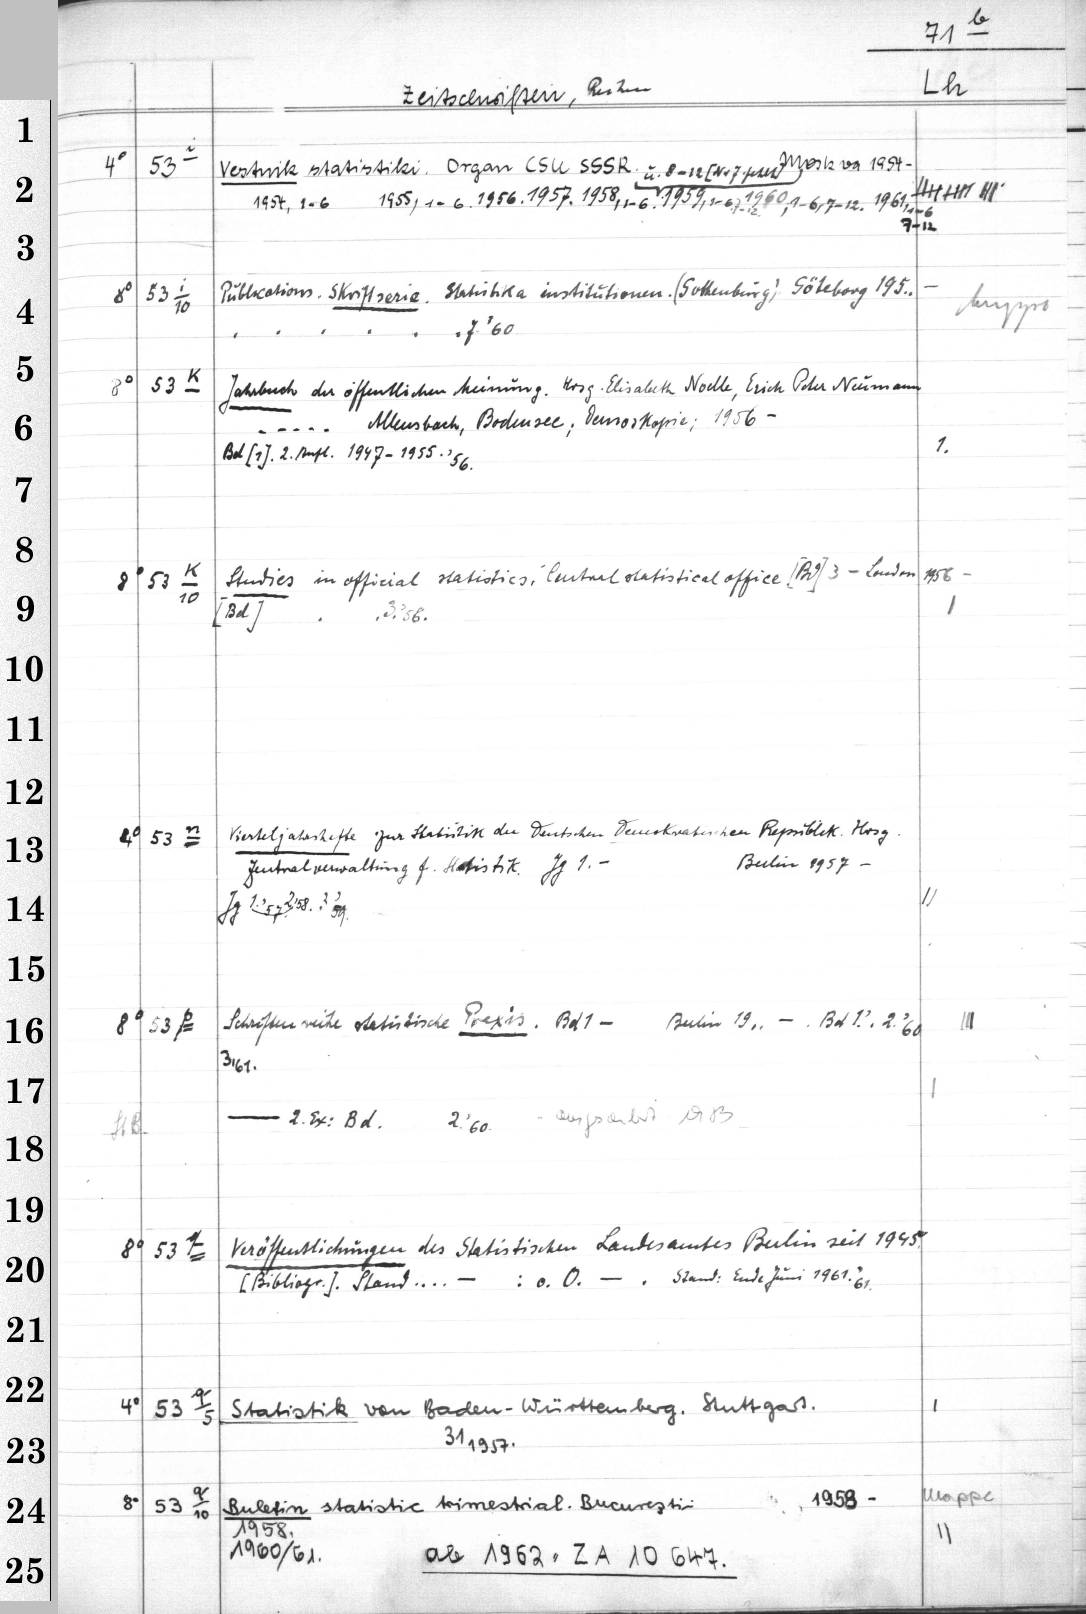 71 b
Zeitschriften, Reihen Lh
4° 53 i Vestnik statistiki. Organ CSU SSSR. u. 8-12 [Nr 7 fehlt] Moskva 1954-
1954, 1-6 1955, 1-6. 1956. 1957. 1958, 1-6. 1959, 1-6, 7-12 1960, 1-6, 7-12. 1961, 1-6
7-12
8° 53 i/10 Publications. Skriftserie. Statistika institutionen. (Gothenburg) Göteborg 195.. -
. . . . . . 7.'60
8° 53 K Jahrbuch der öffentlichen Meinung. Hrsg. Elisabeth Noelle, Erich Peter Neumann
. - - - - . Allensbach, Bodensee; Demoskopie; 1956 -
Bd [1]. 2. Aufl. 1947-1955.'56. 1.
8° 53 K/10 Studies in official statistics; Central statistical office [Bd] 3 - London 1956 -
[Bd] . 3.'56. I
4° 53 n Vierteljahrshefte zur Statistik der Deutschen Demokratischen Republik. Hrsg.
Zentralverwaltung f. Statistik. Jg 1.- Berlin 1957 -
Jg 1.'57 2.'58. 3.'59. II
8° 53 p Schriftenreihe statistische Praxis. Bd 1 - Berlin 19.. - . Bd 1.', 2.'60 III
3'61.
St B. —— 2. Ex: Bd. 2.'60. - ausgesondert 1983 I
8° 53 q Veröffentlichungen des Statistischen Landesamtes Berlin seit 1945.
[Bibliogr.]. Stand .... - : o. O. - . Stand: Ende Juni 1961.'61.
4° 53 q/5 Statistik von Baden-Württemberg. Stuttgart. I
31 1957.
8° 53 q/10 Buletin statistic trimestrial. Bucureşti 1958 - Mappe
1958. II
1960/61. ab 1962 : ZA 10 647.
1
2
3
4
5
6
7
8
9
10
11
12
13
14
15
16
17
18
19
20
21
22
23
24
25